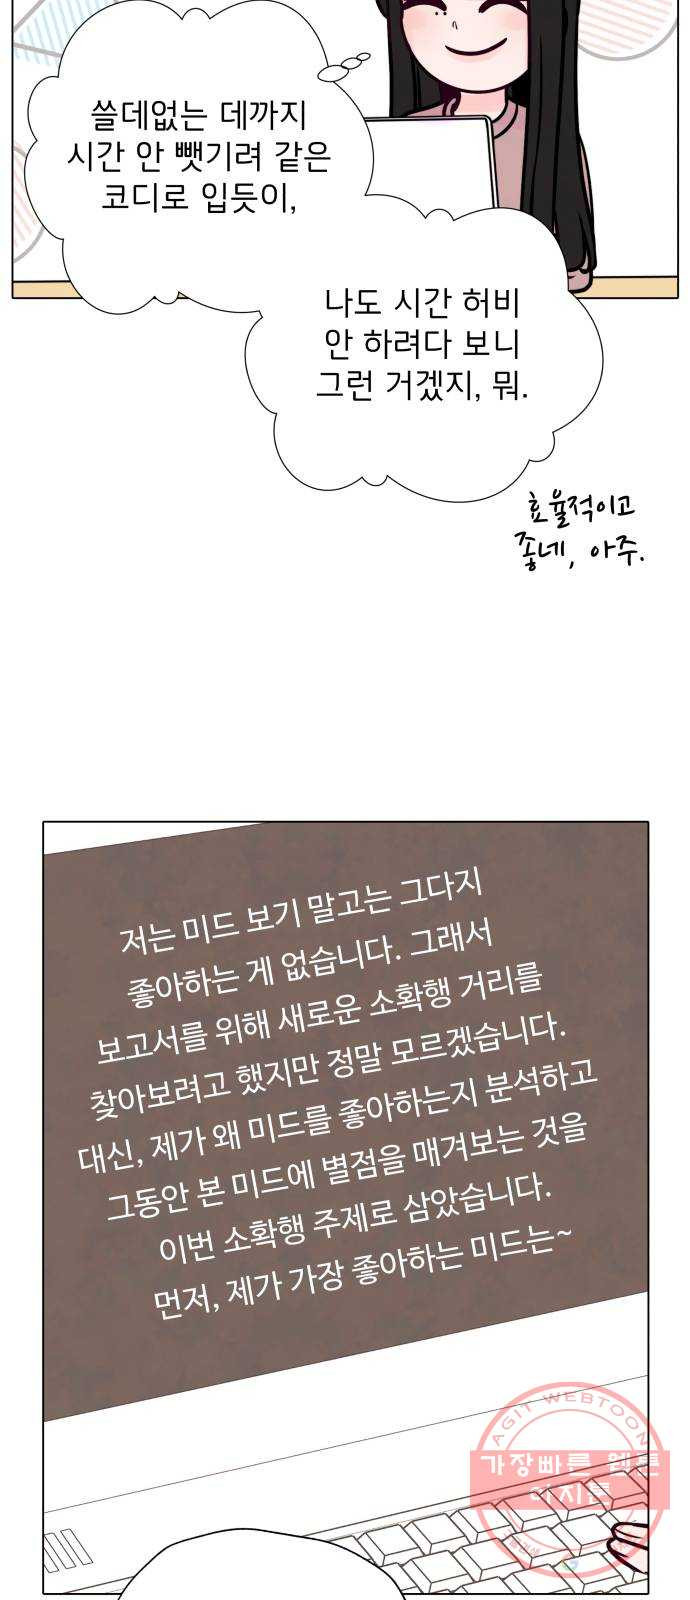 쓸데없는 데까지
시간 안 뺏기려 같은
코디로 입듯이,
나도 시간 허비
안 하려다 보니
그런 거겠지, 뭐.
효율적이고
좋네, 아주.
저는 미드 보기 말고는 그다지
좋아하는 게 없습니다. 그래서
보고서를 위해 새로운 소확행 거리를
찾아보려고 했지만 정말 모르겠습니다.
대신, 제가 왜 미드를 좋아하는지 분석하고
그동안 본 미드에 별점을 매겨보는 것을
이번 소확행 주제로 삼았습니다.
먼저, 제가 가장 좋아하는 미드는~
AGIT WEBTOON
가장빠른 웹툰
아지툰